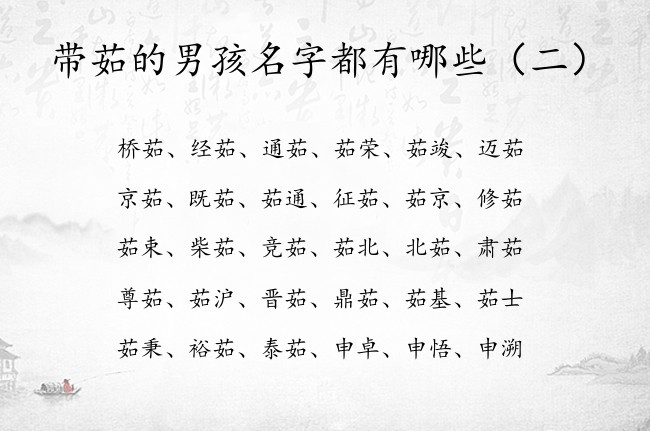 带茹的男孩名字都有哪些（二）
桥茹、经茹、通茹、茹荣、茹竣、迈茹
京茹、既茹、茹通、征茹、茹京、修茹
茹束、柴茹、竞茹、茹北、北茹、肃茹
尊茹、茹沪、晋茹、鼎茹、茹基、茹士
茹秉、裕茹、泰茹、申卓、申悟、申溯